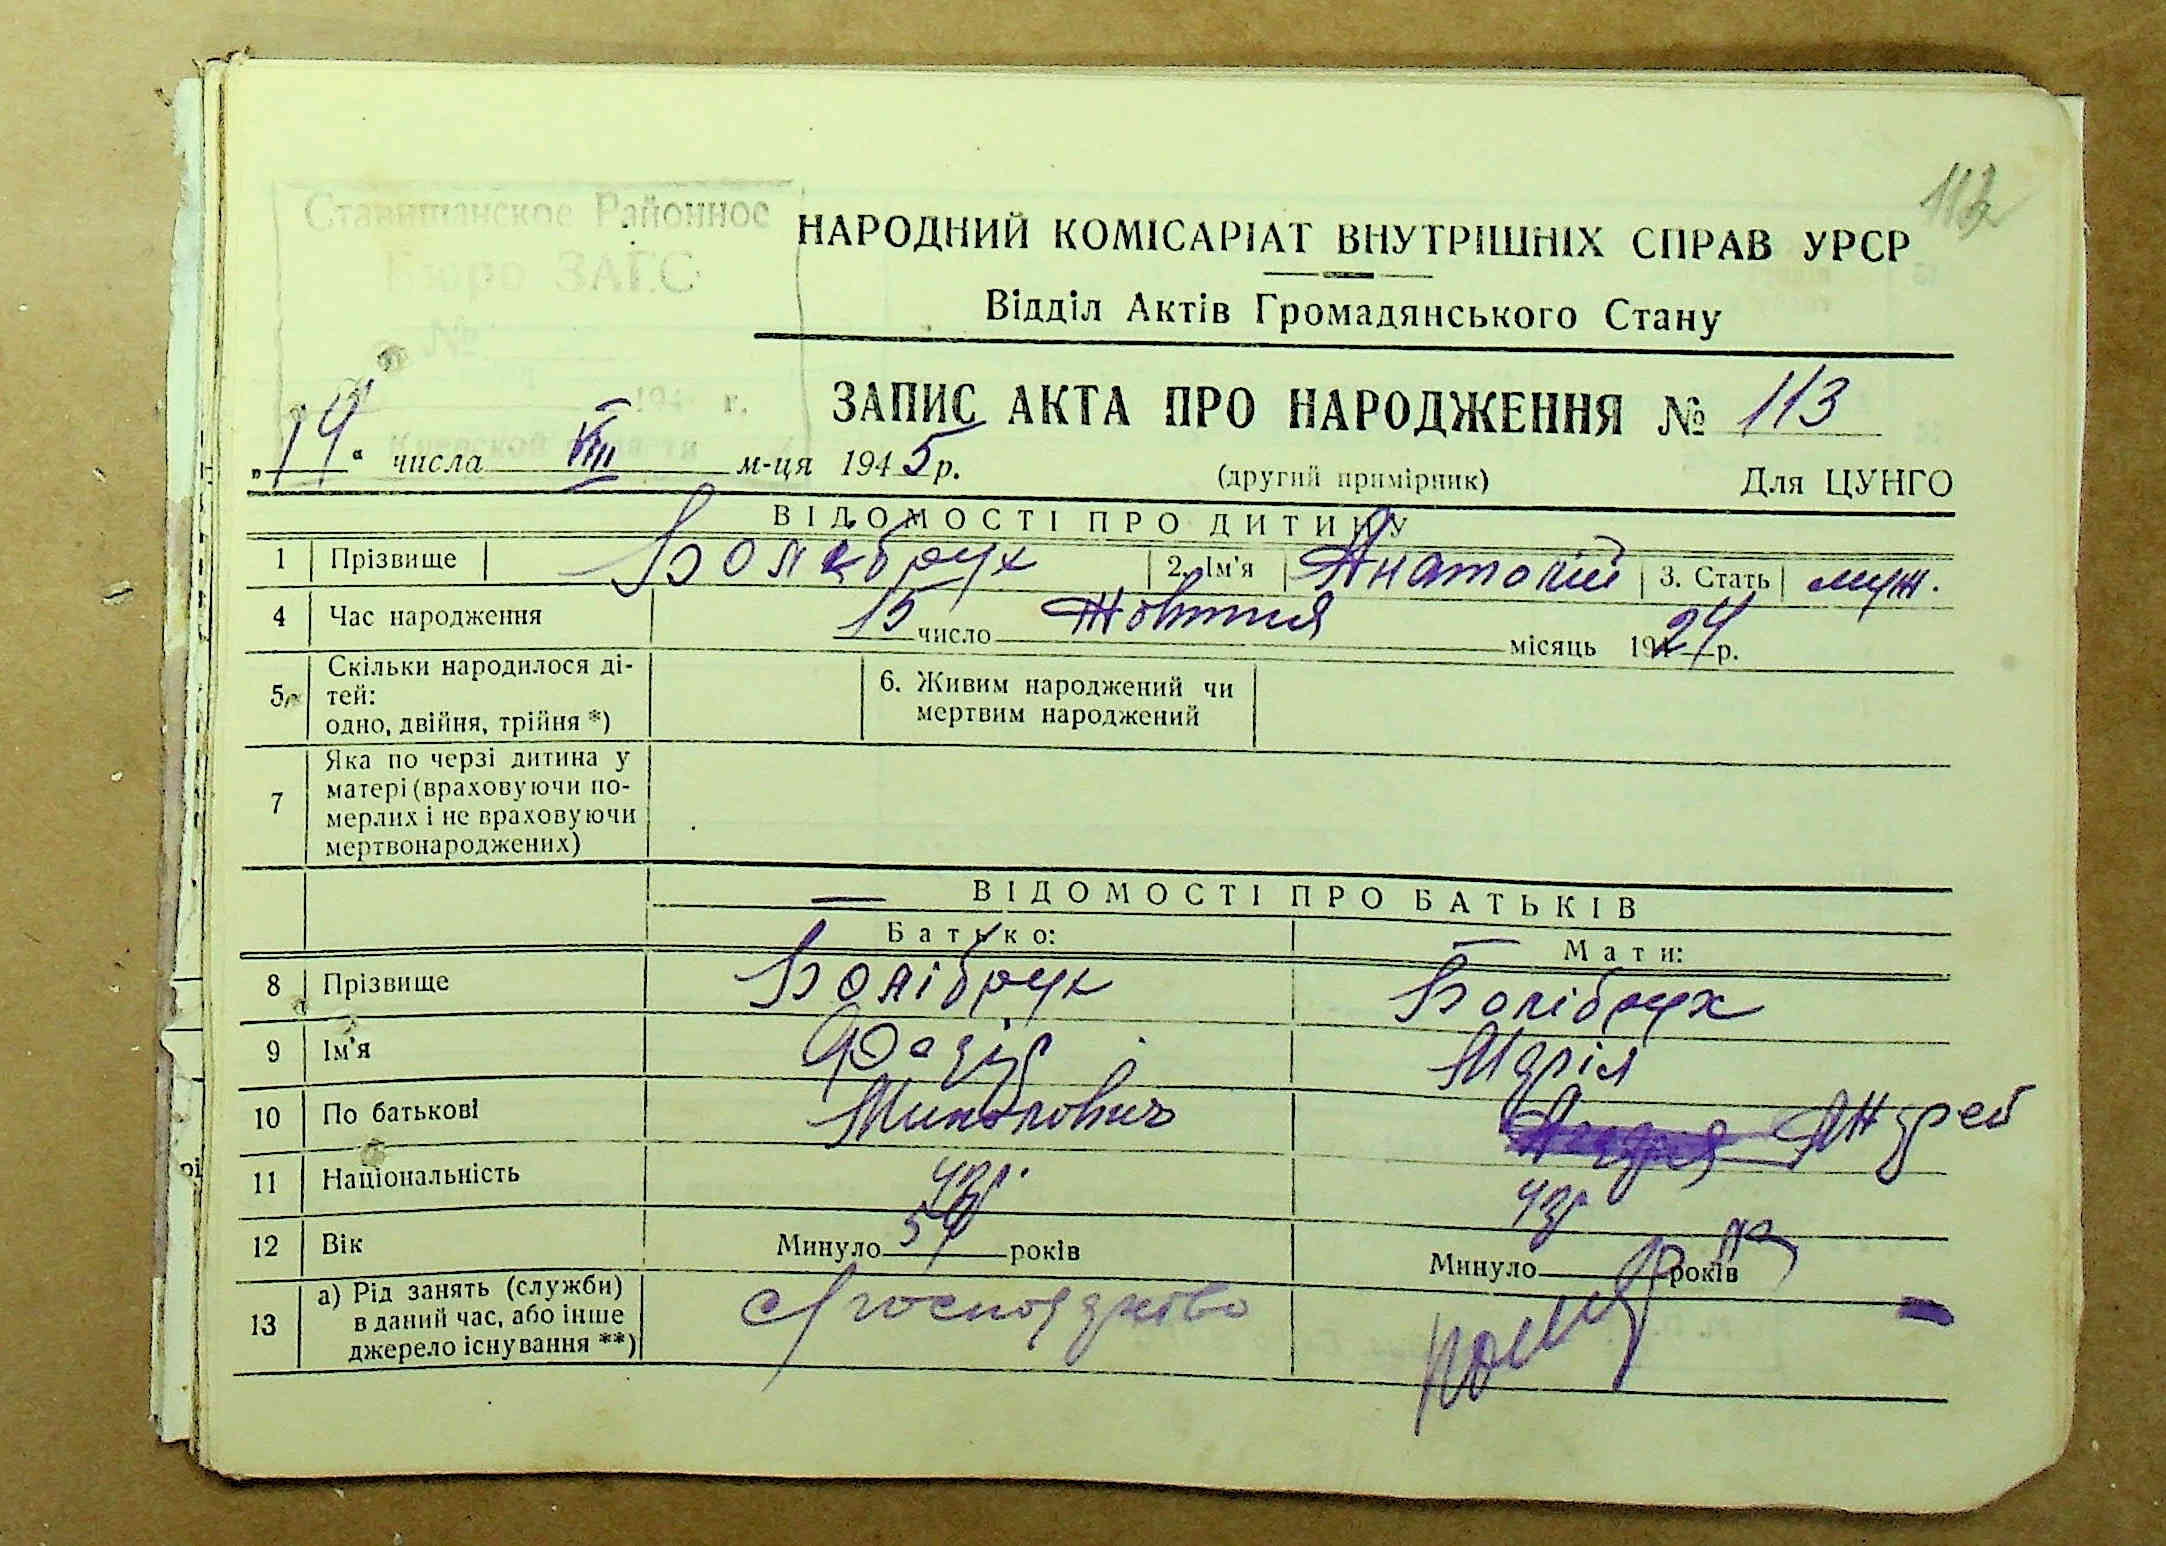 113
Ставищанское Районное
Бюро ЗАГС
№
НАРОДНИЙ КОМІСАРІАТ ВНУТРІШНІХ СПРАВ УРСР
Відділ Актів Громадянського Стану
194 г.
Киевской области
ЗАПИС АКТА ПРО НАРОДЖЕННЯ № 113
„14“ числа VIII м-ця 1945 р. (другий примірник) Для ЦУНГО
ВІДОМОСТІ ПРО ДИТИНУ
1 Прізвище Болібрух 2. Ім'я Анатолій 3. Стать муж.
4 Час народження 15 число Жовтня місяць 1924 р.
5 Скільки народилося ді-
тей:
одно, двійня, трійня *)
6. Живим народжений чи
мертвим народжений
7 Яка по черзі дитина у
матері (враховуючи по-
мерлих і не враховуючи
мертвонароджених)
ВІДОМОСТІ ПРО БАТЬКІВ
Батько: Мати:
8 Прізвище Болібрух Болібрух
9 Ім'я Марія
10 По батькові Андрей
11 Національність укр. укр
12 Вік Минуло 54 років Минуло років
13 а) Рід занять (служби)
в даний час, або інше
джерело існування **)